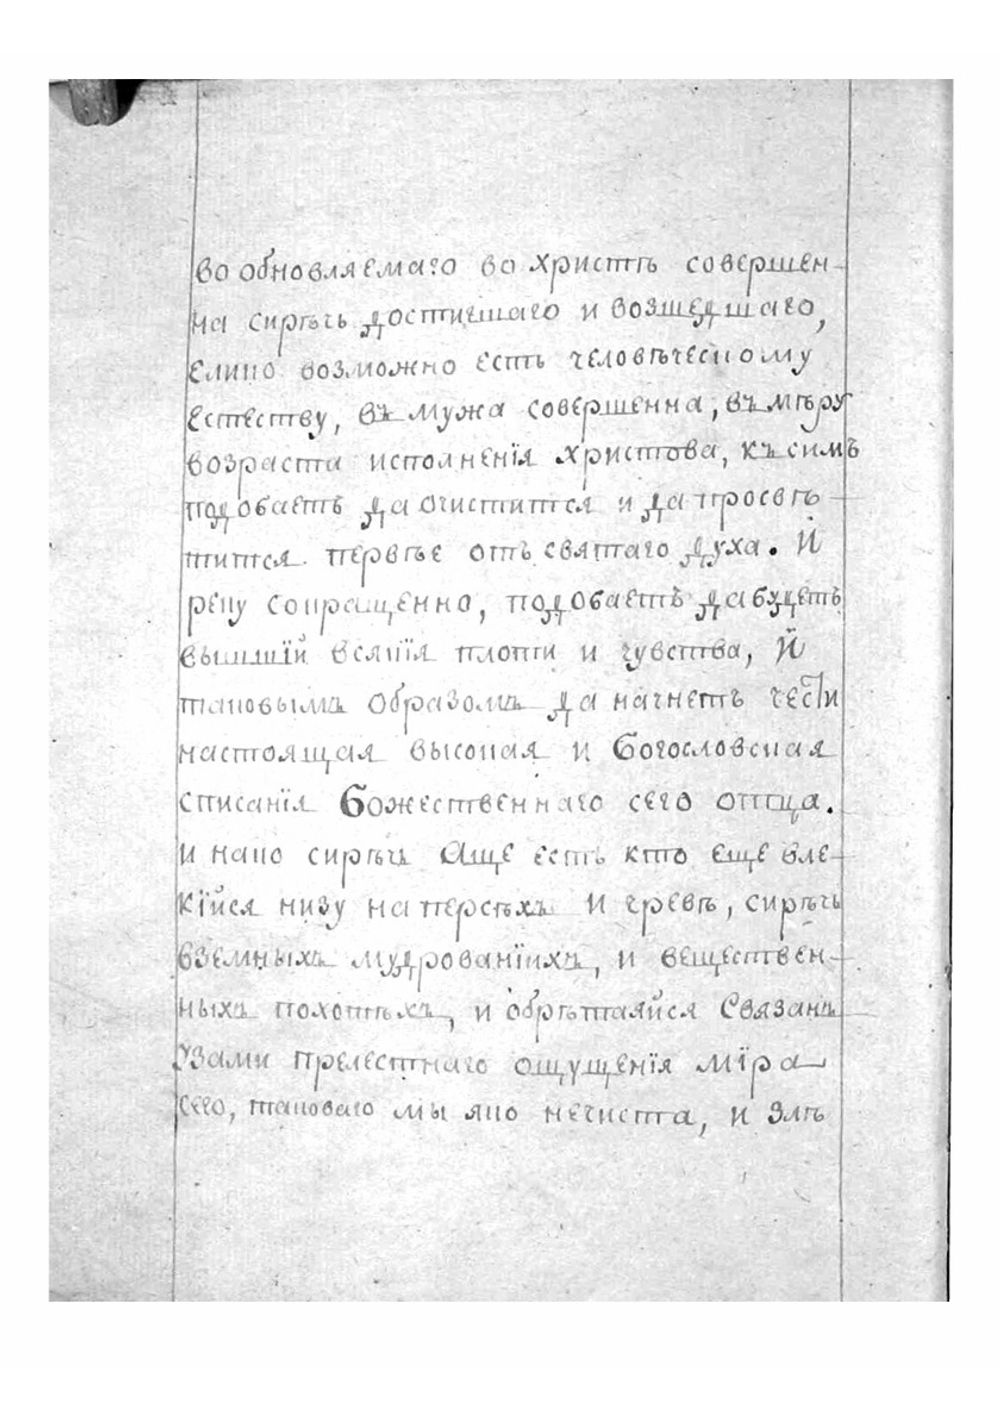 во обновляемаго во христѣ совершен-
на сирѣчь достигшаго и возшедшаго,
елико возможно есть человѣческому
естеству, въ мужа совершенна, въ мѣру
возраста исполненїя христова, къ симъ
подобаетъ да очистится и да просвѣ-
тится первѣе отъ святаго духа. И
реку сокращенно, подобаетъ да будетъ
вышшїй всякїя плоти и чувства, И
таковымъ образомъ да начнетъ чести
настоящая высокая и Богословская
списанїя Божественнаго сего отца.
и како сирѣчь Аще есть кто еще вле-
кїйся низу на персѣхъ и чревѣ, сирѣчь
вземныхъ мудрованїихъ, и веществен-
ныхъ похотѣхъ, и обрѣтаяйся Связанъ
узами прелестнаго ощущенїя мїра
сего, таковаго мы яко нечиста, и злѣ